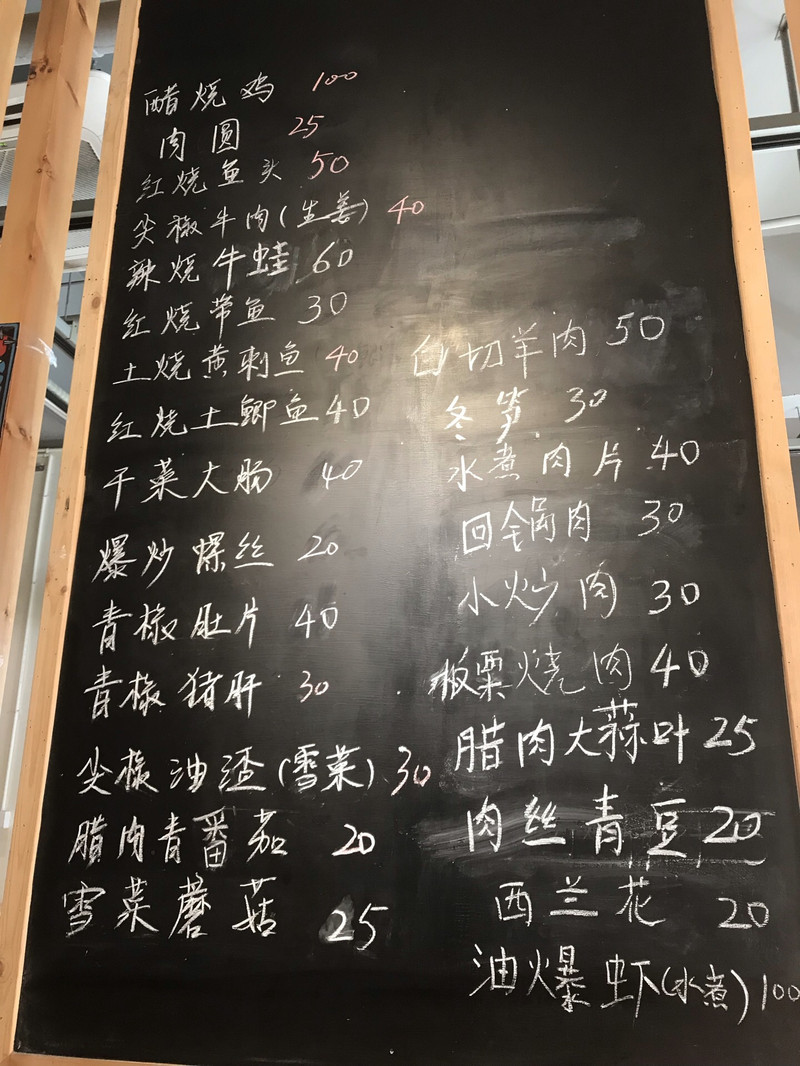 醋烧鸡 100
肉圆 25
红烧鱼头 50
尖椒牛肉(生姜) 40
辣烧牛蛙 60
红烧带鱼 30
土烧黄刺鱼 40
红烧土鲫鱼 40
干菜大肠 40
爆炒螺丝 20
青椒肚片 40
青椒猪肝 30
尖椒油渣(雪菜) 30
腊肉青番茄 20
雪菜蘑菇 25
白切羊肉 50
冬笋 30
水煮肉片 40
回锅肉 30
小炒肉 30
板栗烧肉 40
腊肉大蒜叶 25
肉丝青豆 20
西兰花 20
油爆虾(水煮) 100